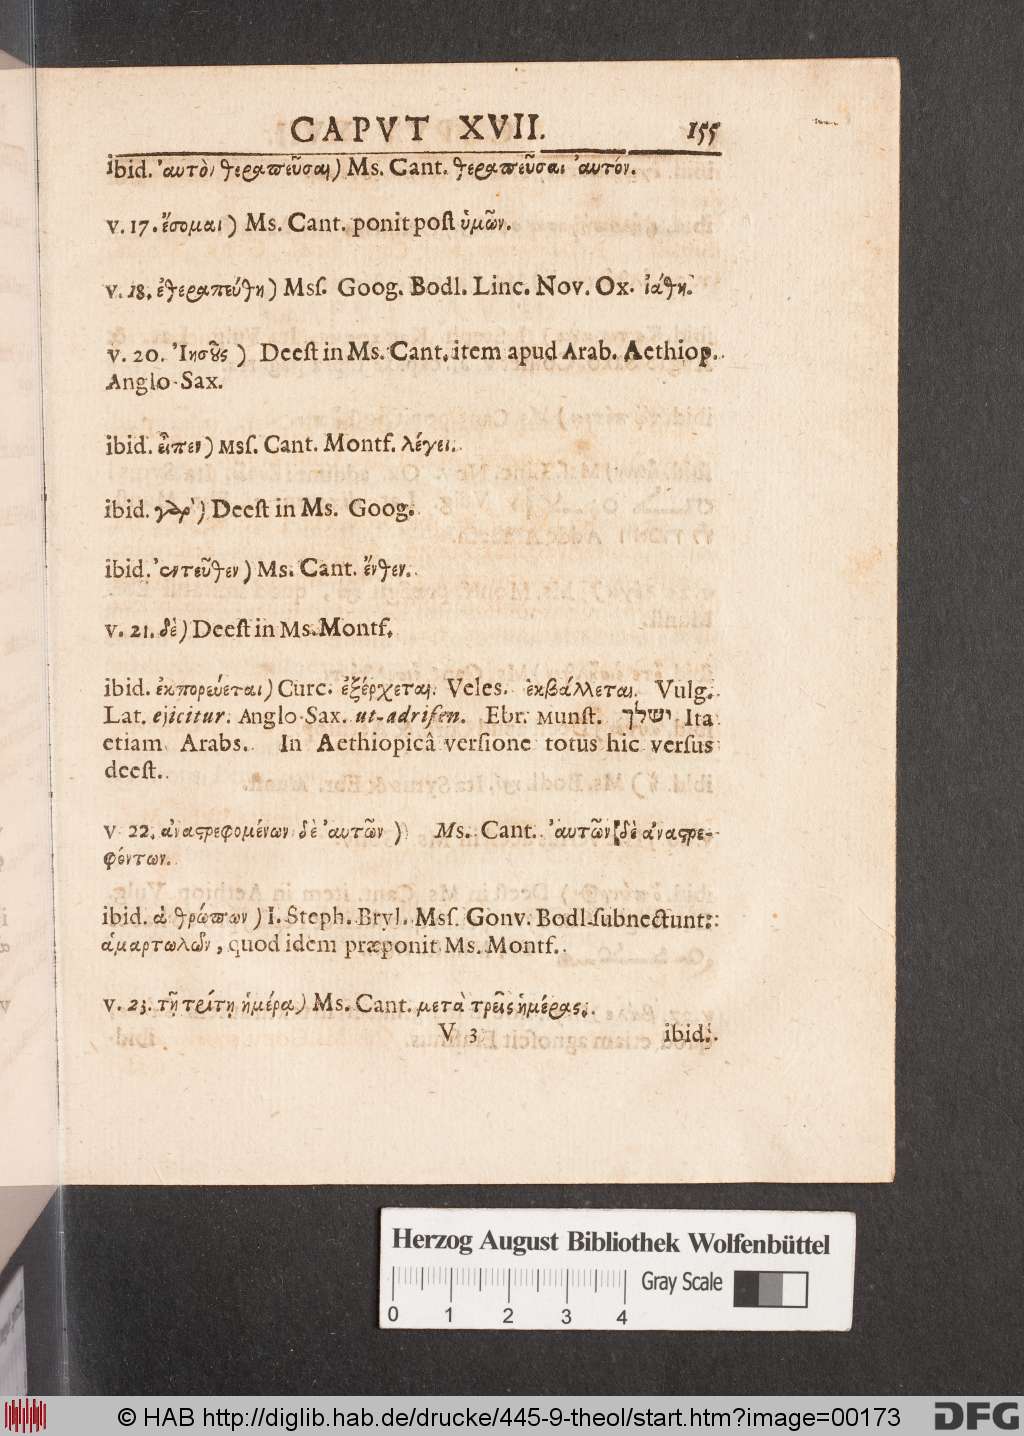 CAPVT XVII. 155
ibid. 'αυτὸν θεραπεῦσαι) Ms. Cant. θεραπεῦσαι 'αυτόν.
v. 17. ἔσομαι) Ms. Cant. ponit poſt ὑμῶν.
v. 18. ἐθεραπεύθη) Mſſ. Goog. Bodl. Linc. Nov. Ox. ἰάθη.
v. 20. 'Ιησοῦς ) Deeſt in Ms. Cant. item apud Arab. Aethiop.
Anglo-Sax.
ibid. εἶπεν) Msſ. Cant. Montf. λέγει.
ibid. γὰρ) Deeſt in Ms. Goog.
ibid. 'εντεῦθεν) Ms. Cant. ἔνθεν.
v. 21. δὲ) Deeſt in Ms. Montf.
ibid. ἐκπορεύεται) Curc. ἐξέρχεται. Veleſ. ἐκβάλλεται. Vulg.
Lat. ejicitur. Anglo-Sax. ut-adrifen. Ebr. Munſt. ישלך Ita
etiam Arabs. In Aethiopicâ verſione totus hic verſus
deeſt.
v 22. ἀναστρεφομένων δὲ 'αυτῶν ) Ms. Cant. 'αυτῶν δὲ ἀναστρε-
φόντων.
ibid. ἀ θρώπων ) I. Steph. Bryl. Msſ. Gonv. Bodl. ſubnectunt:
ἁμαρτωλῶν, quod idem præponit Ms. Montf.
v. 23. τῇ τρίτῃ ἡμέρᾳ) Ms. Cant. μετὰ τρεῖς ἡμέρας.
V 3 ibid.
Herzog August Bibliothek Wolfenbüttel
Gray Scale
0 1 2 3 4
© HAB http://diglib.hab.de/drucke/445-9-theol/start.htm?image=00173 DFG